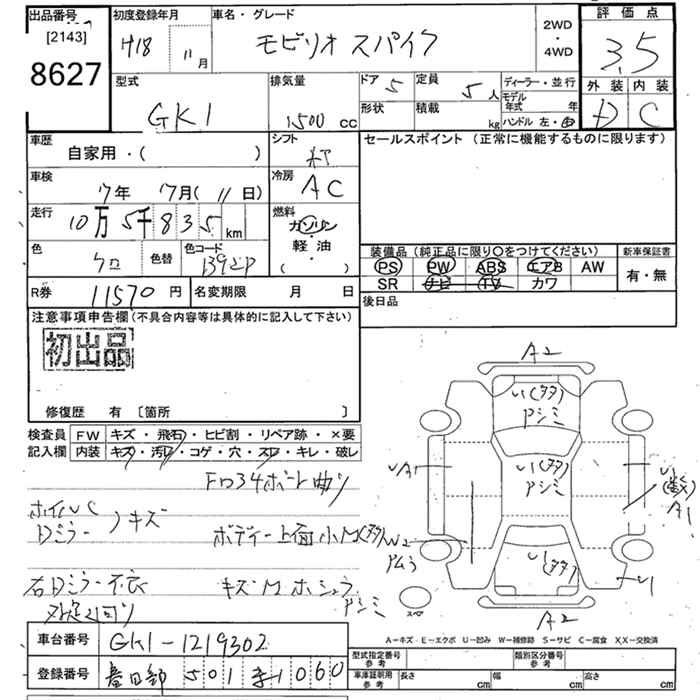 出品番号 初度登録年月 車名・グレード 2WD ・ 4WD 評価点
[2143]
8627 H18 11月 モビリオ スパイク 3.5
外装 内装
D C
型式 排気量 ドア 5 定員 5人 ディーラー・並行
GK1 1500 cc 形状 積載 kg モデル年式 年
ハンドル 左・右
車歴 シフト セールスポイント (正常に機能するものに限ります)
自家用・( )
車検 7年 7月(11日) 冷房 AC
走行 10万5千835km 燃料 ガソリン・軽油・( )
色 クロ 色替 色コード 装備品(純正品に限り○をつけてください) 新車保証書
PS PW ABS エアB AW 有・無
SR ナビ TV カワ
R券 11570円 名変期限 月 日 後日品
注意事項申告欄(不具合内容等は具体的に記入して下さい)
初出品
修復歴 有 〔箇所 〕
検査員 FW キズ・飛石・ヒビ割・リペア跡・×要
記入欄 内装 キズ・汚レ・コゲ・穴・スレ・キレ・破レ
A2
い(タタ)
アシミ
い(タタ)
アシミ
A1
A1
ボート曲リ
キズ
Dミラー
ボディー上面小M(タタ)
W2
い(タタ)
右Dミラー不良
アシミ
スペア
A2
A−キズ E−エクボ U−凹み W−補修跡 S−サビ C−腐食 XX−交換済
車台番号 GK1-1219302
登録番号 春日部 501 1060
型式指定番号 参考 類別区分番号 参考
車庫証明用 参考 長さ cm 幅 cm 高さ cm